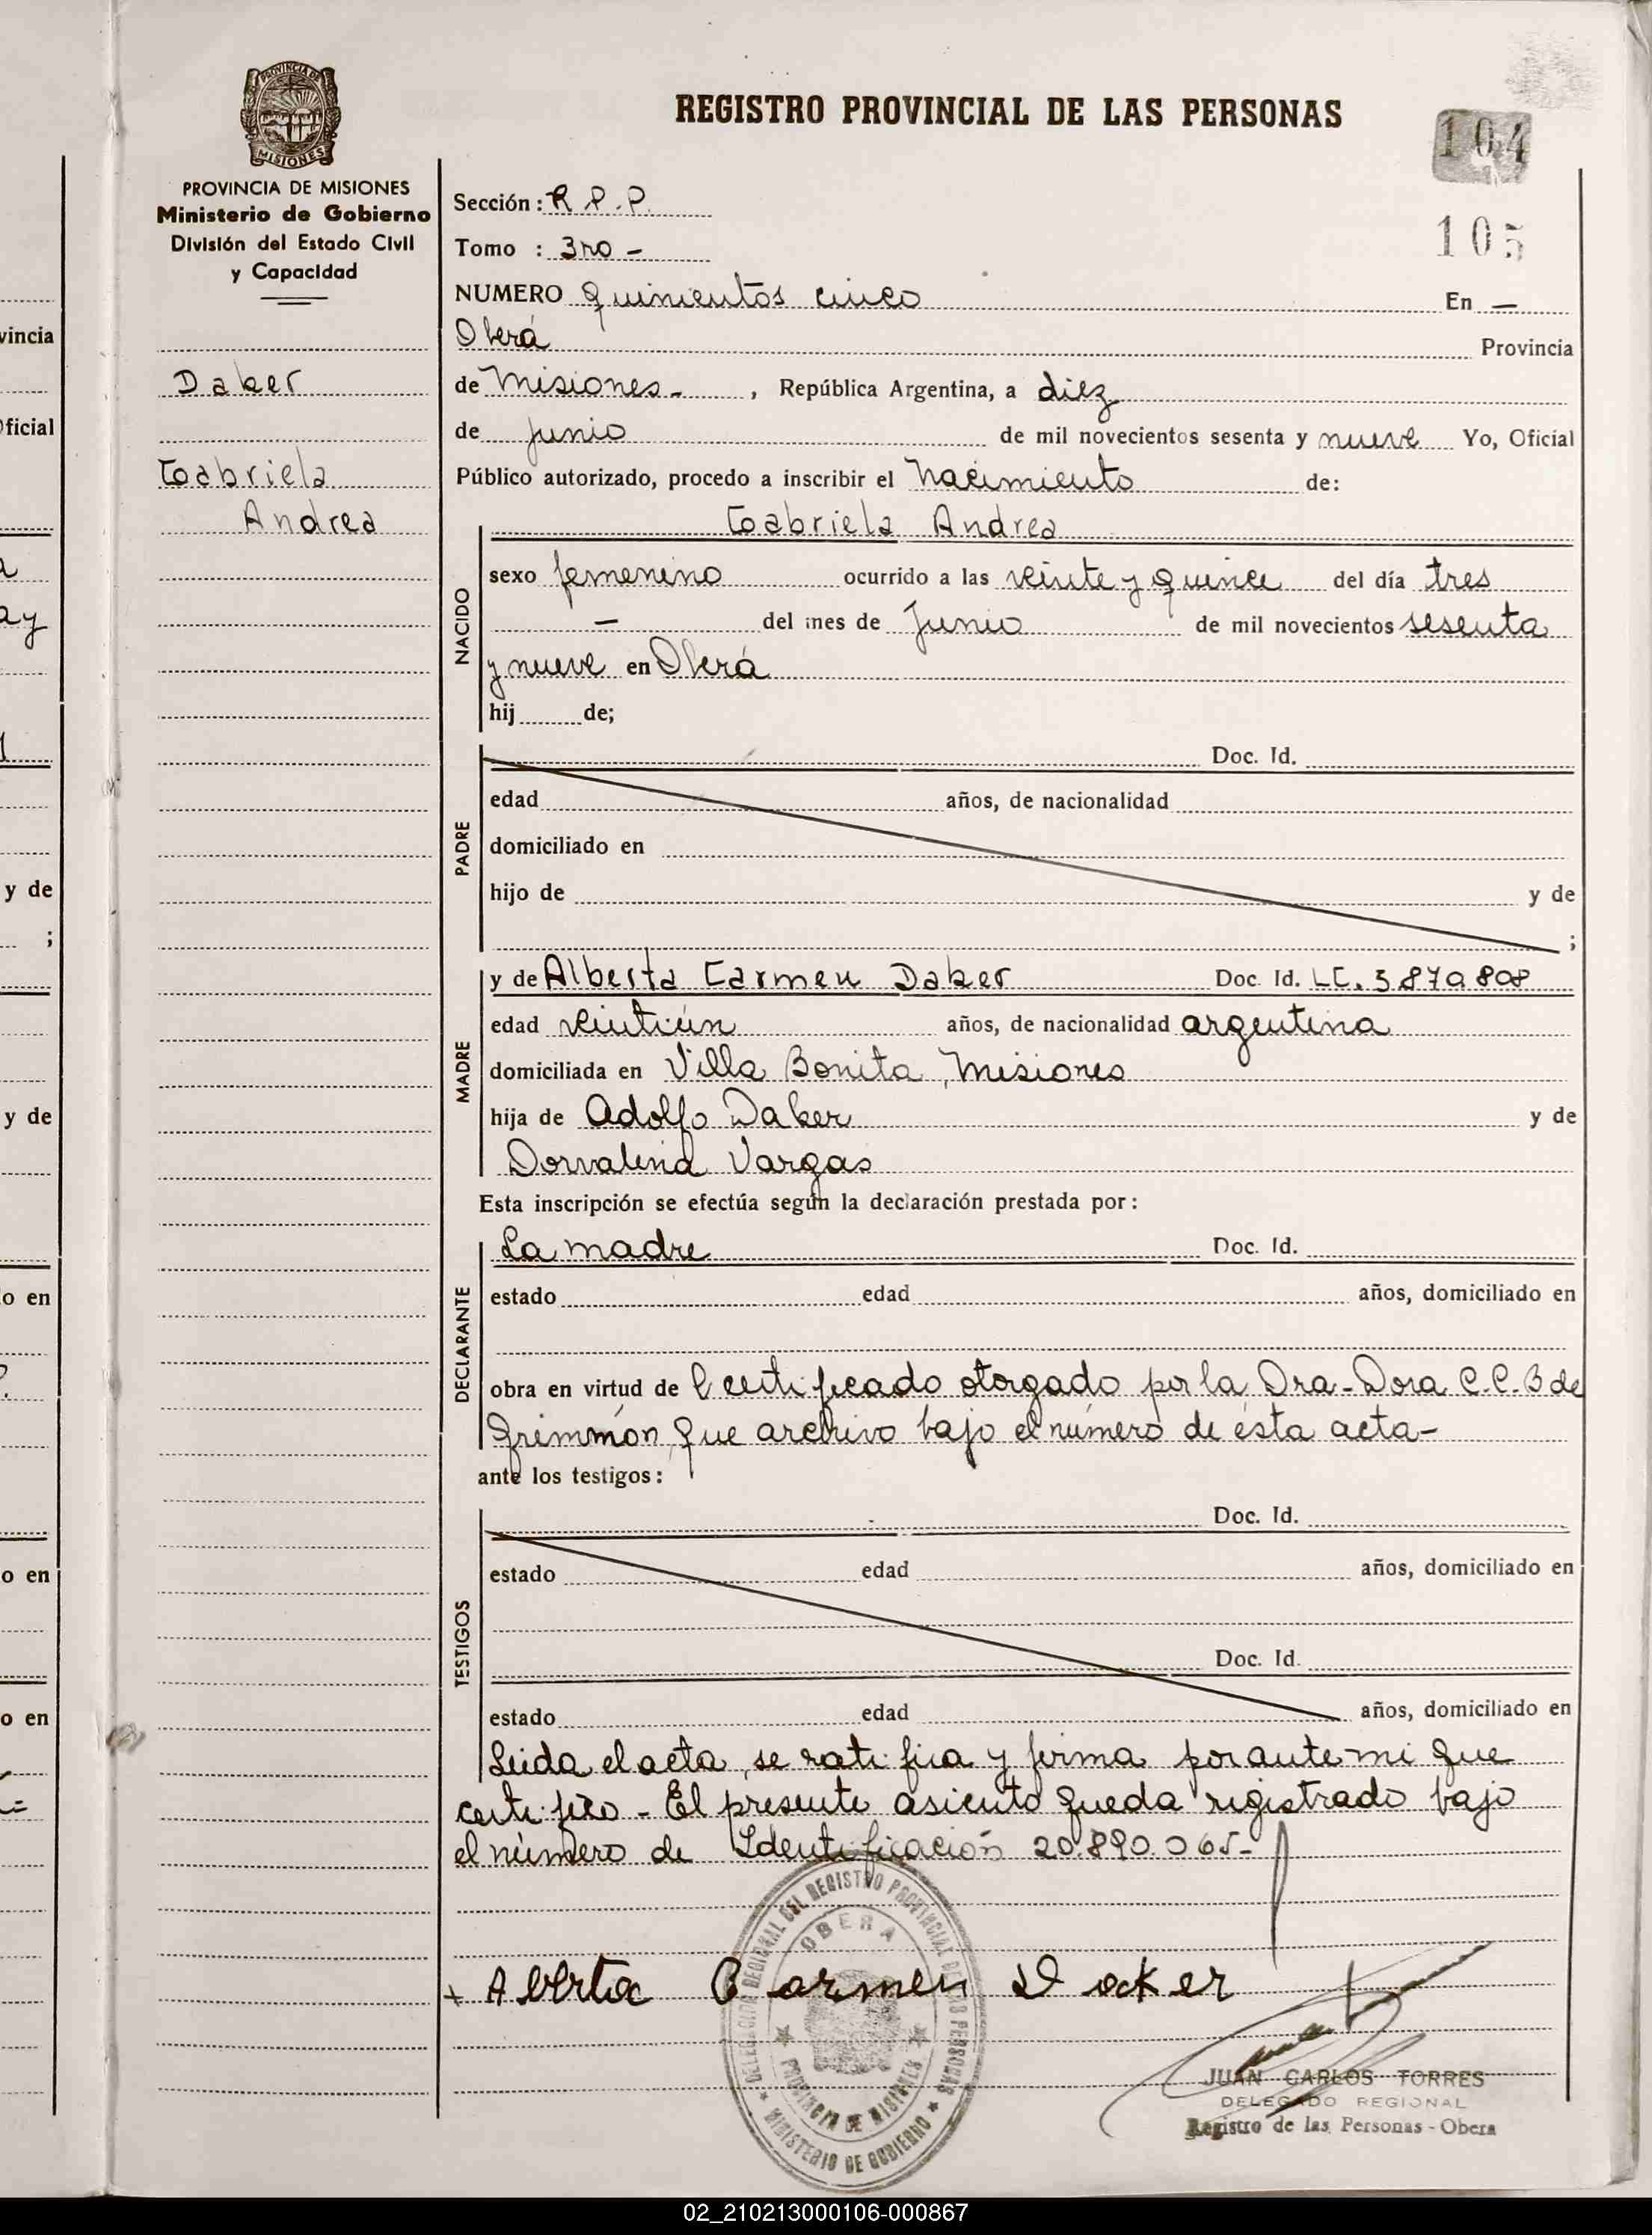 REGISTRO PROVINCIAL DE LAS PERSONAS
104
105
PROVINCIA DE
MISIONES
PROVINCIA DE MISIONES
Ministerio de Gobierno
División del Estado Civil
y Capacidad
Daker
Gabriela
Andrea
Sección: R.P.P.
Tomo : 3ro -
NUMERO quinientos cinco En —
Oberá Provincia
de Misiones- , República Argentina, a diez
de Junio de mil novecientos sesenta y nueve Yo, Oficial
Público autorizado, procedo a inscribir el Nacimiento de:
Gabriela Andrea
NACIDO
sexo femenino ocurrido a las veinte y quince del día tres
— del mes de Junio de mil novecientos sesenta
y nueve en Oberá
hij de;
PADRE
Doc. Id.
edad años, de nacionalidad
domiciliado en
hijo de y de
;
MADRE
y de Alberta Carmen Daker Doc. Id. LC. 5.870.808
edad veintiún años, de nacionalidad argentina
domiciliada en Villa Bonita, Misiones
hija de Adolfo Daker y de
Dorvalina Vargas
Esta inscripción se efectúa según la declaración prestada por:
DECLARANTE
La madre Doc. Id.
estado edad años, domiciliado en
obra en virtud de Certificado otorgado por la Dra-Dora C.C.B de
Grimmón, que archivo bajo el número de ésta acta-
ante los testigos:
TESTIGOS
Doc. Id.
estado edad años, domiciliado en
Doc. Id.
estado edad años, domiciliado en
Leida el acta, se ratifica y firma por ante mi que
certifico - El presente asiento queda registrado bajo
el número de Identificación 20.890.065-
+ Alberta Carmen Docker
DELEGACION REGIONAL DEL REGISTRO PROVINCIAL DE LAS PERSONAS
OBERA
PROVINCIA DE MISIONES
MINISTERIO DE GOBIERNO
JUAN CARLOS TORRES
DELEGADO REGIONAL
Registro de las Personas - Obera
vincia
Oficial
y de
;
y de
o en
o en
o en
02_210213000106-000867